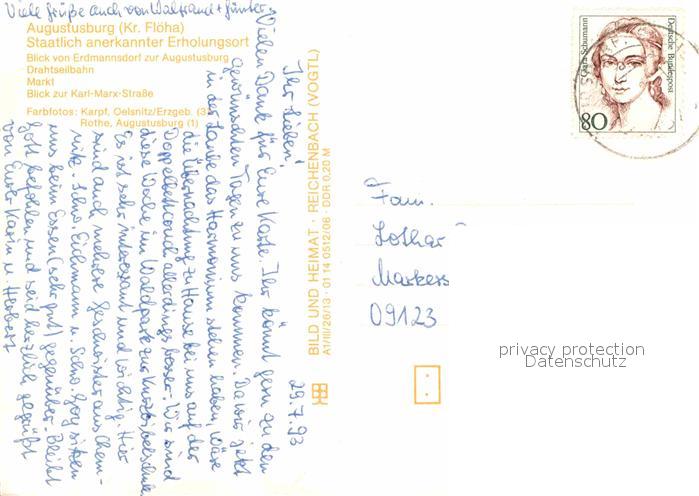 Viele Grüße auch von Waltraud + Günter
Augustusburg (Kr. Flöha)
Staatlich anerkannter Erholungsort
Blick von Erdmannsdorf zur Augustusburg
Drahtseilbahn
Markt
Blick zur Karl-Marx-Straße
Farbfotos: Karpf, Oelsnitz/Erzgeb. (3)
Rothe, Augustusburg (1)
29.7.93
Ihr Lieben!
Vielen Dank für Eure Karte. Ihr könnt gern zu den
gewünschten Tagen zu uns kommen. Da wir jetzt
in der Laube das Harmonium stehen haben, wäre
die Übernachtung zu Hause bei uns auf der
Doppelbettcouch allerdings besser. Wir sind
diese Woche im Waldpark zur Kurzbibelschule.
Es ist sehr interessant und wichtig. Hier
sind auch mehrere Geschwister aus Chem-
nitz. Schw. Eichmann u. Schw. sitzen
uns beim Essen (sehr gut) gegenüber. Bleibt
Gott befohlen und seid herzlich gegrüßt
von Eurer Karin u. Herbert
BILD UND HEIMAT · REICHENBACH (VOGTL)
A1/III/26/13 · 01 14 0512/06 · DDR 0,20 M
Clara Schumann
Deutsche Bundespost
80
Fam.
Lothar
Markers
09123
privacy protection
Datenschutz